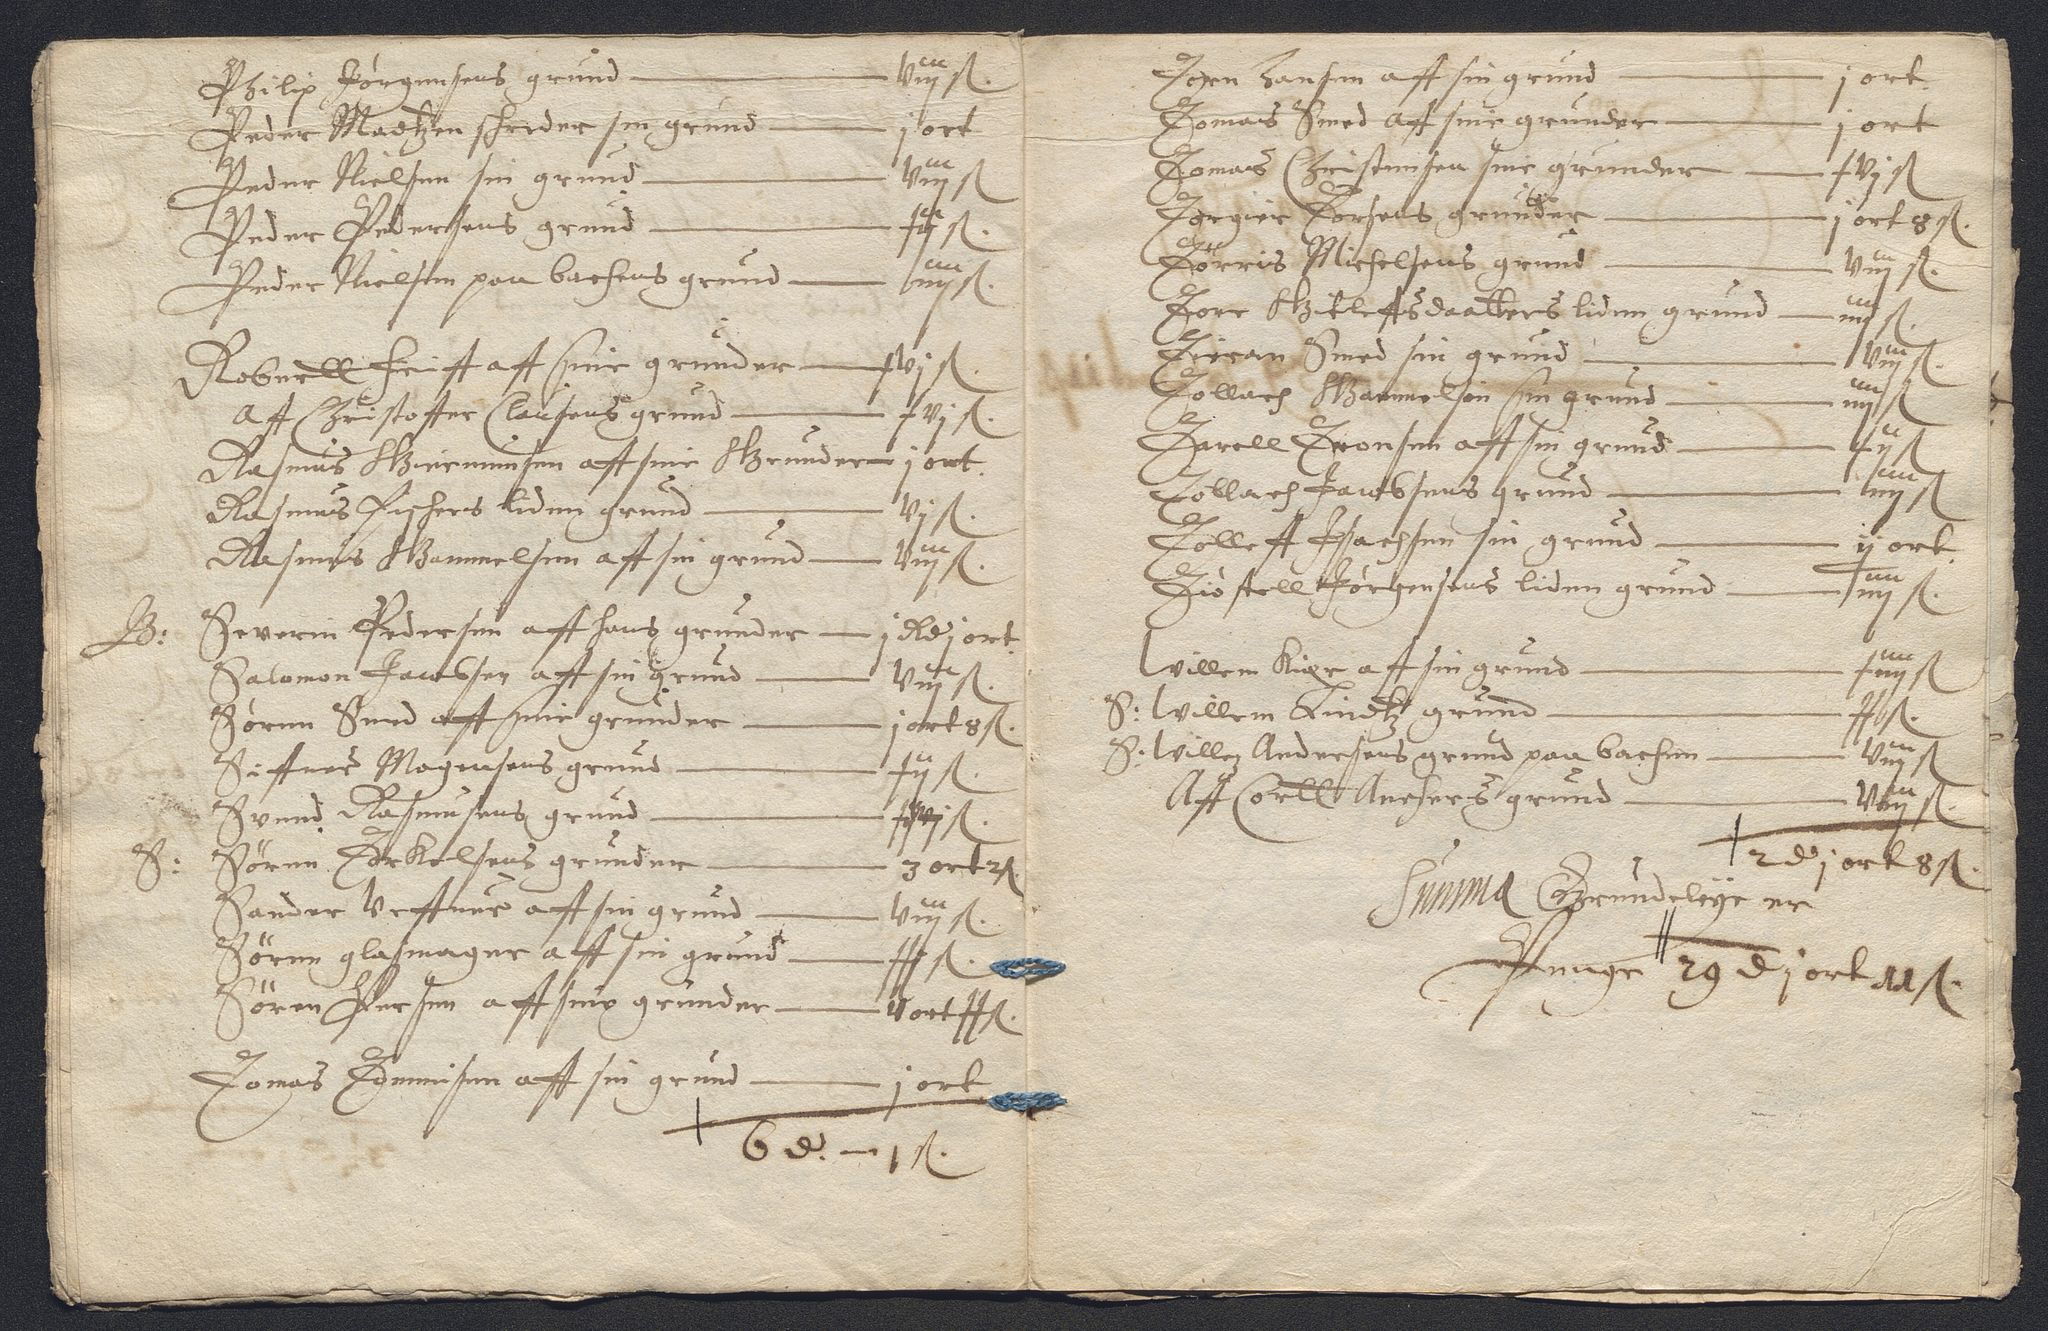 Philip Jørgensens grund — viij ß.
Peder Madtzen schreder sin grund — j ort
Peder Nielsen sin grund — viij ß
Peder Pedersens grund — xij ß.
Peder Nielsen paa bachens grund — iiij ß.
Robertt Feiff aff sine grunder — xvj ß.
Aff Christoffer Clausens grund — xvj ß.
Rasmus Giermunsen aff sine Grunder — j ort.
Rasmus Fischers liden grund — vj ß.
Rasmus Gammelsen aff sin grund — viij ß.
B: Severin Pedersen aff hans grunder — j Rd j ort.
Salomon Jacobsen aff sin grund — viij ß.
Søren Smed aff sine grunder — j ort 8 ß.
Siffuer Mogensens grund — xij ß.
Svend Rasmusens grund — xvj ß.
S: Søren Torkelsens grunder — 3 ort 2 ß.
Sander aff sin grund — viij ß.
Søren glasmager aff sin grund — xx ß.
Søren Persen aff sine grunder — v ort xx ß.
Tomas Tommisen aff sin grund — j ort
6 d. — 1 ß.
Toen Hansen aff sin grund — j ort.
Tomas Smed aff sine grunder — j ort
Tomas Christensen sine grunder — xvj ß
Torgier Torsens grunder — j ort 8 ß.
Tørris Michelsens grund — viij ß.
Tore Gutleffsdaatters liden grund — iiij ß.
Smed sin grund — viij ß.
Tollach Gammelsen sin grund — iiij ß
Tarell Tronsen aff sin grund — xij ß
Tollach Jacobsens grund — iiij ß
Tolleff Isachsen sin grund — ij ort
Tiøstell Jørgensens liden grund — xiiij ß.
Willem aff sin grund — xiiij ß
S: Willem Lindtz grund — xx ß.
S: Willem Andersens grund paa bachen — viij ß
Aff Cortt Anchers grund — viij ß.
2 d j ort 8 ß.
Summa Grundeleye er
Penge 29 d j ort 11 ß.